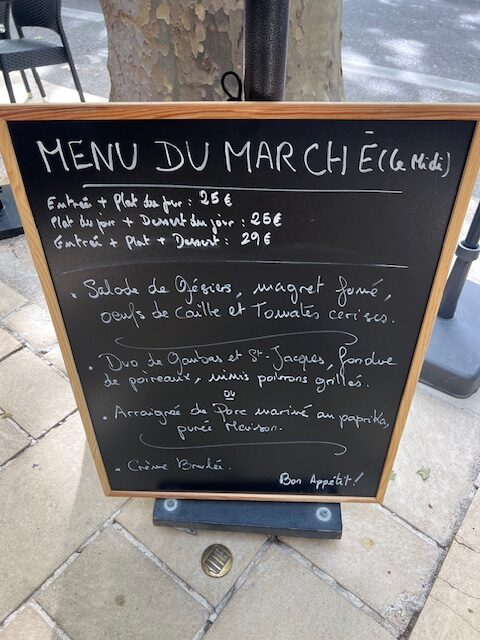 MENU DU MARCHÉ (Le Midi)
Entrée + Plat du jour : 25€
Plat du jour + Dessert du jour : 25€
Entrée + Plat + Dessert : 29€
• Salade de Gésiers, magret fumé,
oeufs de Caille et Tomates cerises.
• Duo de Gambas et St-Jacques, fondue
de poireaux, minis poivrons grillés.
ou
• Arraignée de Porc mariné au paprika,
purée Maison.
• Crème Brulée.
Bon Appétit !